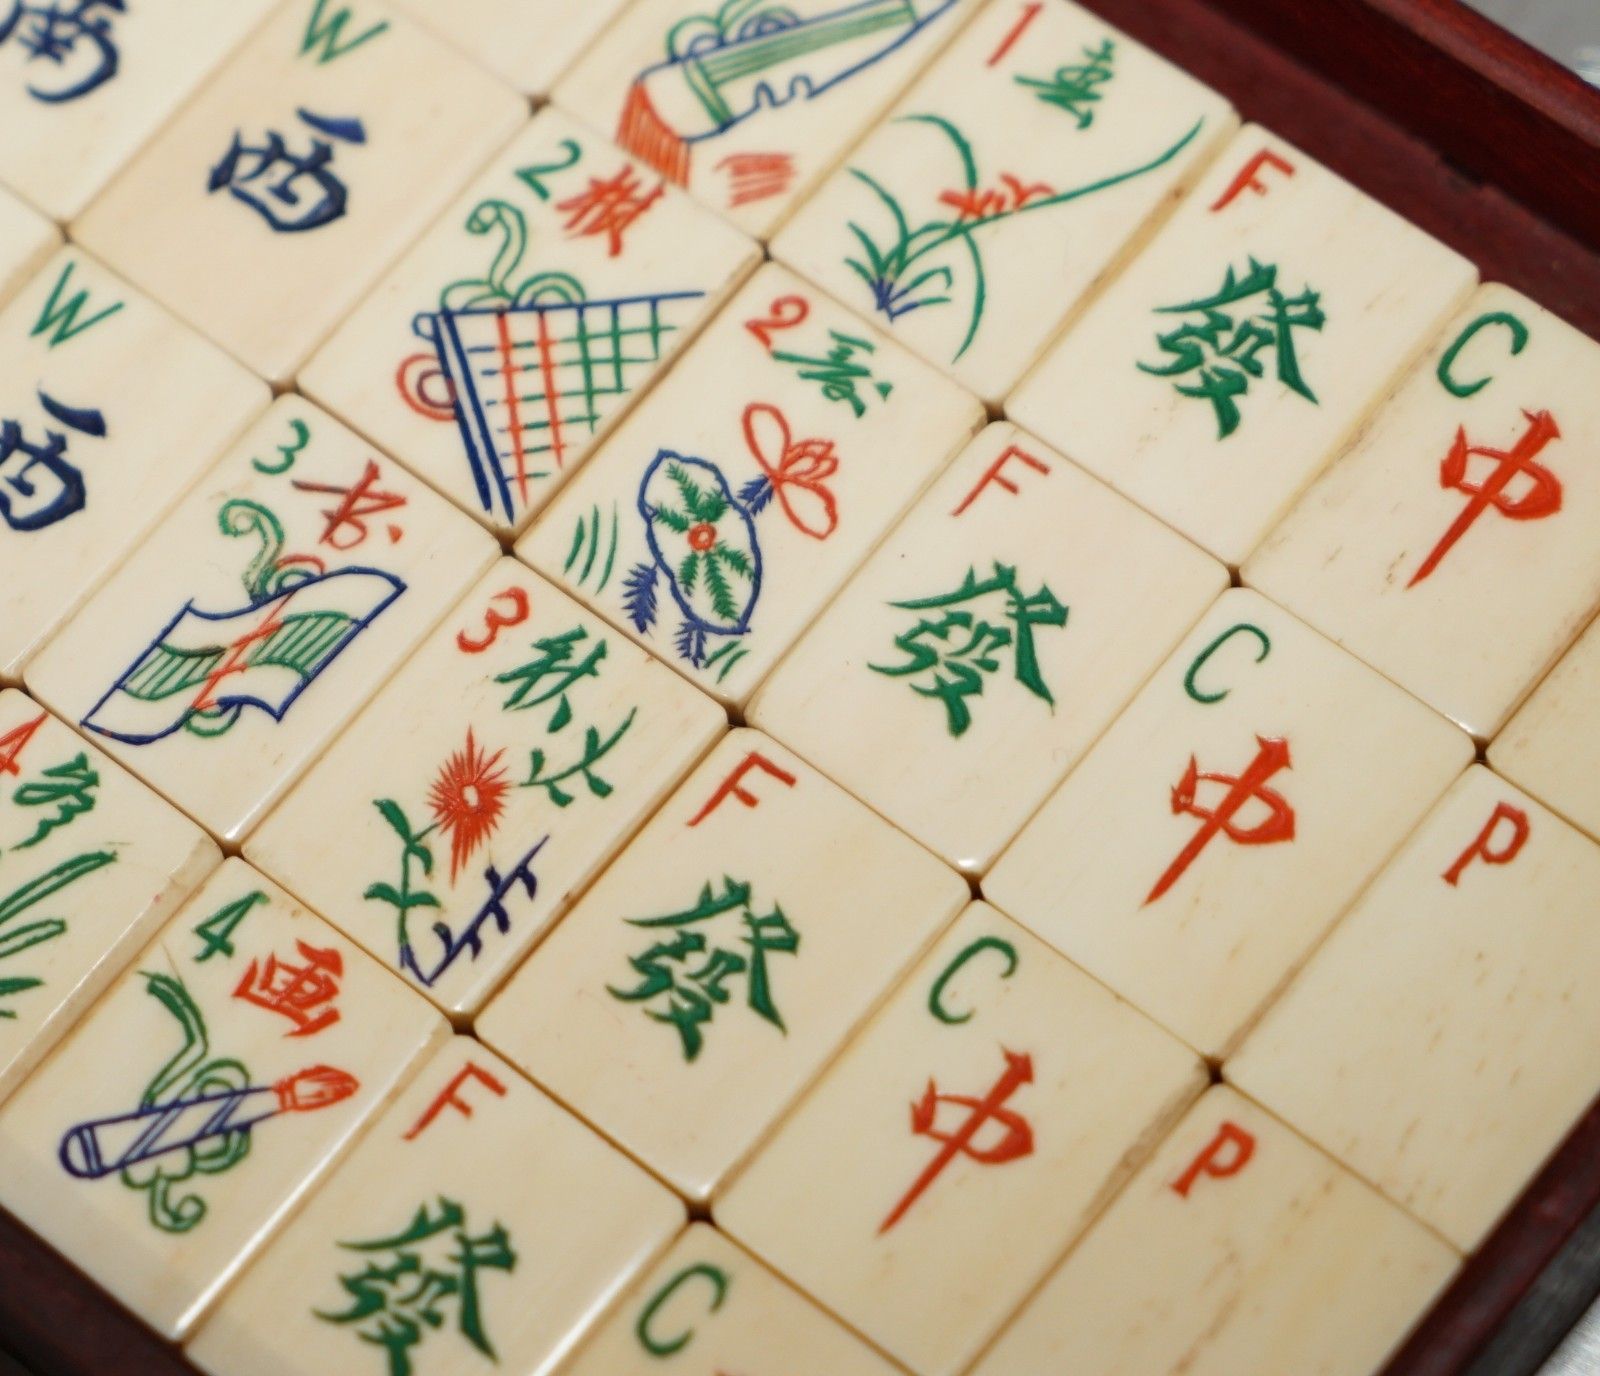 南
W
西
W
西
2 棋
3 书
4 画
1 春
2 夏
3 秋
4
F
發
F
發
F
發
F
發
C
中
C
中
C
中
C
P
P